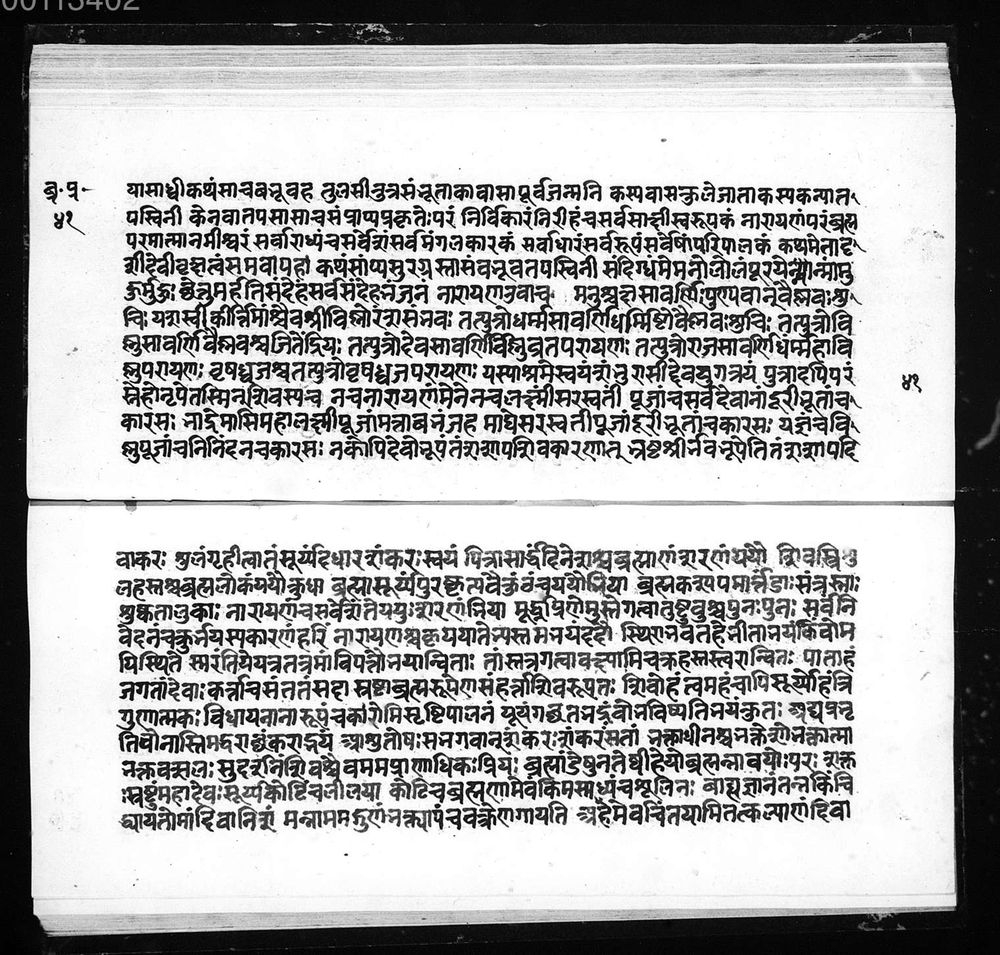 00113402
ब्र. प्र-
४१
यासाध्वीकथंसाचबभूवह तुलसीकुत्रसंभूताकावासापूर्वजन्मनि कस्यवासाकुलेजाताकस्यकन्यात-
पस्विनी केनवातपसासाचसंप्राप्यप्रकृतेःपरं निर्विकारंनिरीहंचसर्वसाक्षीस्वरूपकं नारायणंपरंब्रह्म
परमात्मानमीश्वरं सर्वाराध्यंचसर्वेशंसर्वमंगलकारकं सर्वाधारंसर्वरूपंसर्वेषांपरिपालकं कथमेतादृ-
शीदेवीवृक्षत्वंसमवापहा कथंसाप्यसुरग्रस्तासंबभूवतपस्विनी संदिग्धंमेमनोलोलंपूरयेन्मां
छेत्तुमर्हसिसंदेहंसर्वसंदेहभंजन नारायणउवाच मनुश्चदक्षसावर्णिःपुण्यवान्वैष्णवःशु-
चिः यशस्वीकीर्त्तिमांश्चैवश्रीविष्णोरंशसंभवः तत्पुत्रोधर्म्मसावर्णिर्धर्म्मिष्टोवैष्णवःशुचिः तत्पुत्रोवि
ष्णुसावर्णिर्वैष्णवश्चजितेंद्रियः तत्पुत्रोदेवसावर्णिर्विष्णुव्रतपरायणः तत्पुत्रोराजसावर्णिर्धर्म्महावि
ष्णुपरायणः वृषध्वजश्चतत्पुत्रोवृषध्वजपरायणः यस्याश्रमेस्वयंशंभुरासीद्देवयुगत्रयं पुत्रादपिपरं
स्नेहोनृपेतस्मिन्शिवस्यच नचनारायणंमेनेनचलक्ष्मींसरस्वती पूजांचसर्वदेवानांदूरीभूतांच
कारसः भाद्रेमासिमहालक्ष्मीपूजांमत्तोबभंजह माघेसरस्वतीपूजांदूरीभूतांचकारसः यज्ञंचवि
ष्णुपूजांचनिनिंदनचकारसः नकोपिदेवोभूपेतंशशापशिवकारणात् भ्रष्टश्रीर्भवभूपेतितंशशापदि
४१
वाकरः शूलंगृहीत्वातंसूर्यंदधारशंकरःस्वयं पित्रासार्द्धंदिनेशश्चब्रह्माणंशरणंययौ शिवस्त्रिशू
लहस्तश्चब्रह्मलोकंययौक्रुधा ब्रह्मासूर्य्यंपुरस्कृत्यवैकुंठंचययौभिया ब्रह्मकश्यपमार्त्तंडाःसंत्रस्ताः
शुष्कतालुकाः नारायणंचसर्वेशंतेययुःशरणंभिया मूर्द्ध्नाप्रणेमुस्तेगत्वातुष्टुवुश्चपुनःपुनः सर्वनि
वेदनंचक्रुर्भयस्यकारणंहरि नारायणश्चकृपयातेभ्यस्तमभयंददौ स्थिराभवतहेभीताभयंकिंवोम
यिस्थिते स्मरंतियेयत्रतत्रमांविपत्तौभयान्विताः तांस्तत्रगत्वावक्ष्यामिचक्रहस्तस्त्वरान्वितः पाताहं
जगतांदेवाःकर्त्ताचसंततंसदा स्रष्टाब्रह्मरूपेणसंहर्त्ताशिवरूपतः शिवोहंत्वमहंचापिसूर्य्योहंत्रि
गुणात्मकः विधायनानारूपंचकरोमिसृष्टिपालनं यूयंगच्छतभद्रंवोभविष्यतिभयंकुतः अद्यप्रभृ
तिवोनास्तिमद्वराच्छंकराद्भयं आशुतोषःसभगवानशंकरःशंकरंसतां भक्ताधीनश्चभक्तेशोभक्तात्मा
भक्तवत्सलः सुदर्शनंशिवश्चैवममप्राणाधिकःप्रियः ब्रह्मांडेषुनतेजीदेयोब्रह्मन्नावयोःपरः शक्तः
स्रष्टुंमहादेवःसूर्य्यकोटिंचलीलया कोटिंचब्रह्मणामेवकिमसाध्यंचशूलिनः बाह्यज्ञानंतन्नकिंचि
द्ध्यायतोमांदिवानिशं मन्नाममद्गुणंभक्त्यापंचवक्रेणगायति अहमेवचिंतयामितत्कल्याणंदिवा